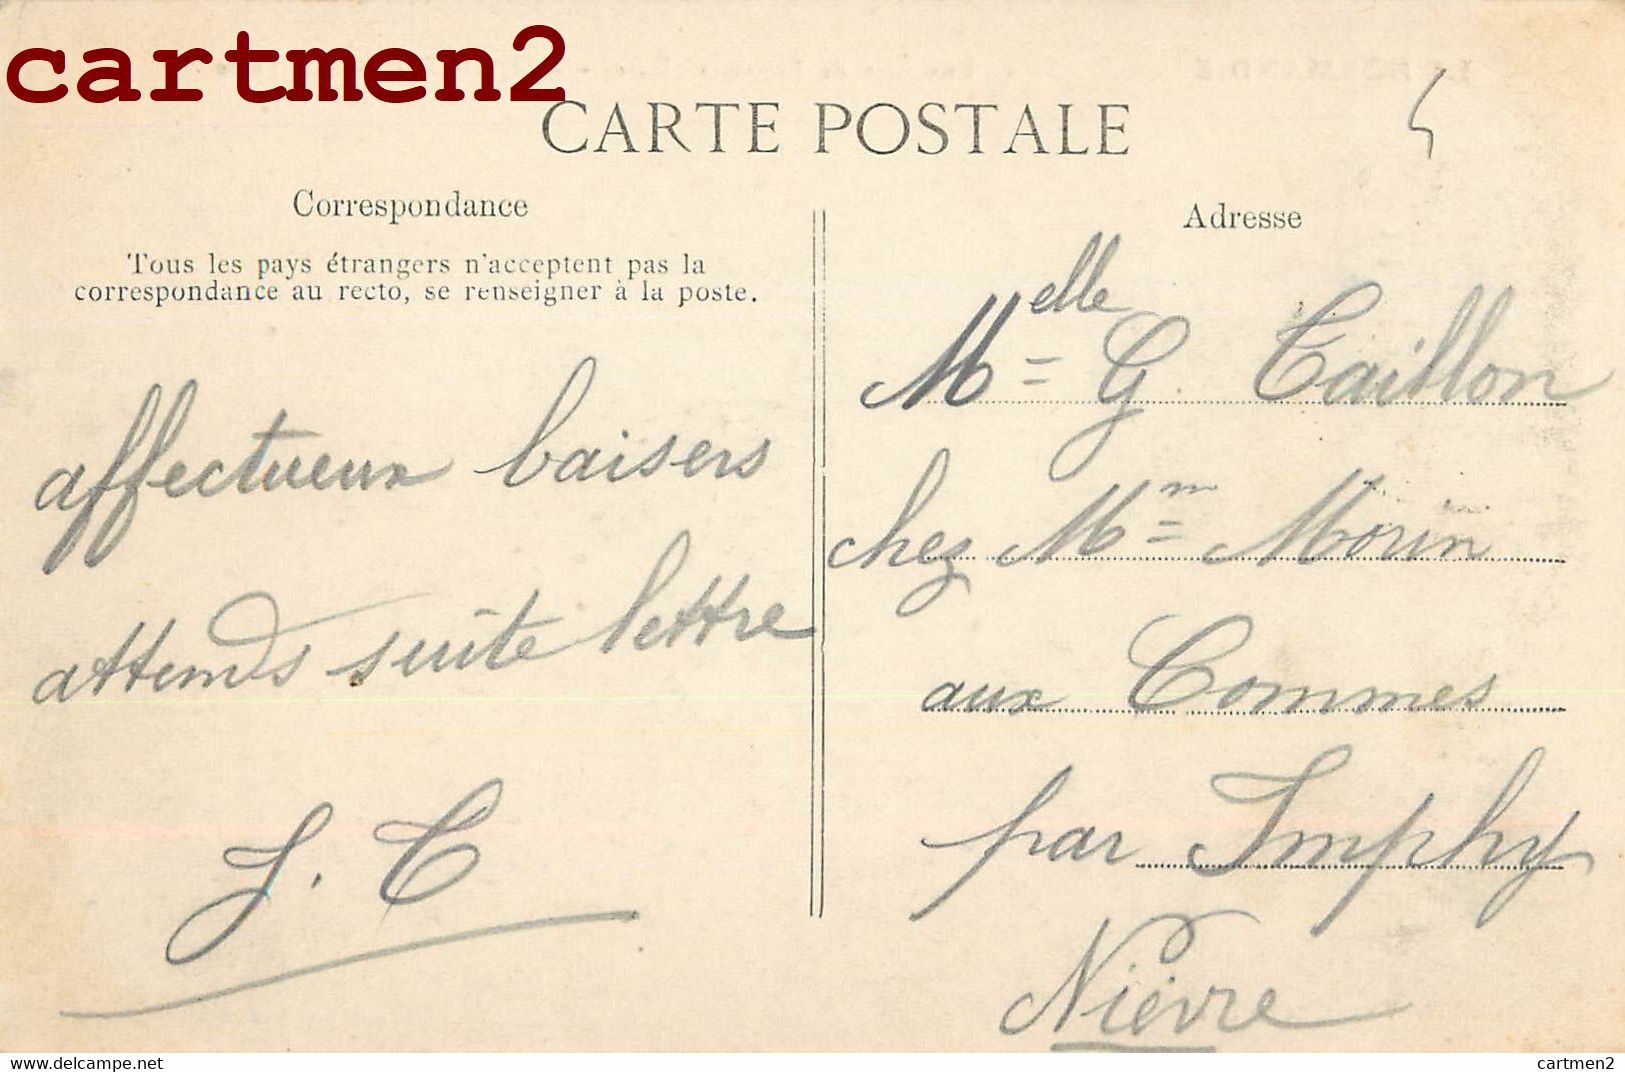 cartmen2
CARTE POSTALE
Correspondance
Tous les pays étrangers n'acceptent pas la
correspondance au recto, se renseigner à la poste.
affectueux baisers
attends suite lettre
J. T
Adresse
Melle G. Taillon
chez Mm Morin
aux Commes
par Imphy
Nièvre
delcampe.net
cartmen2